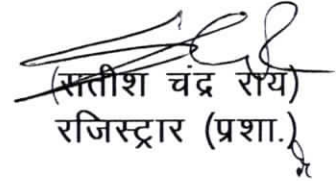 (सतीश चंद्र राय)
रजिस्ट्रार (प्रशा.)